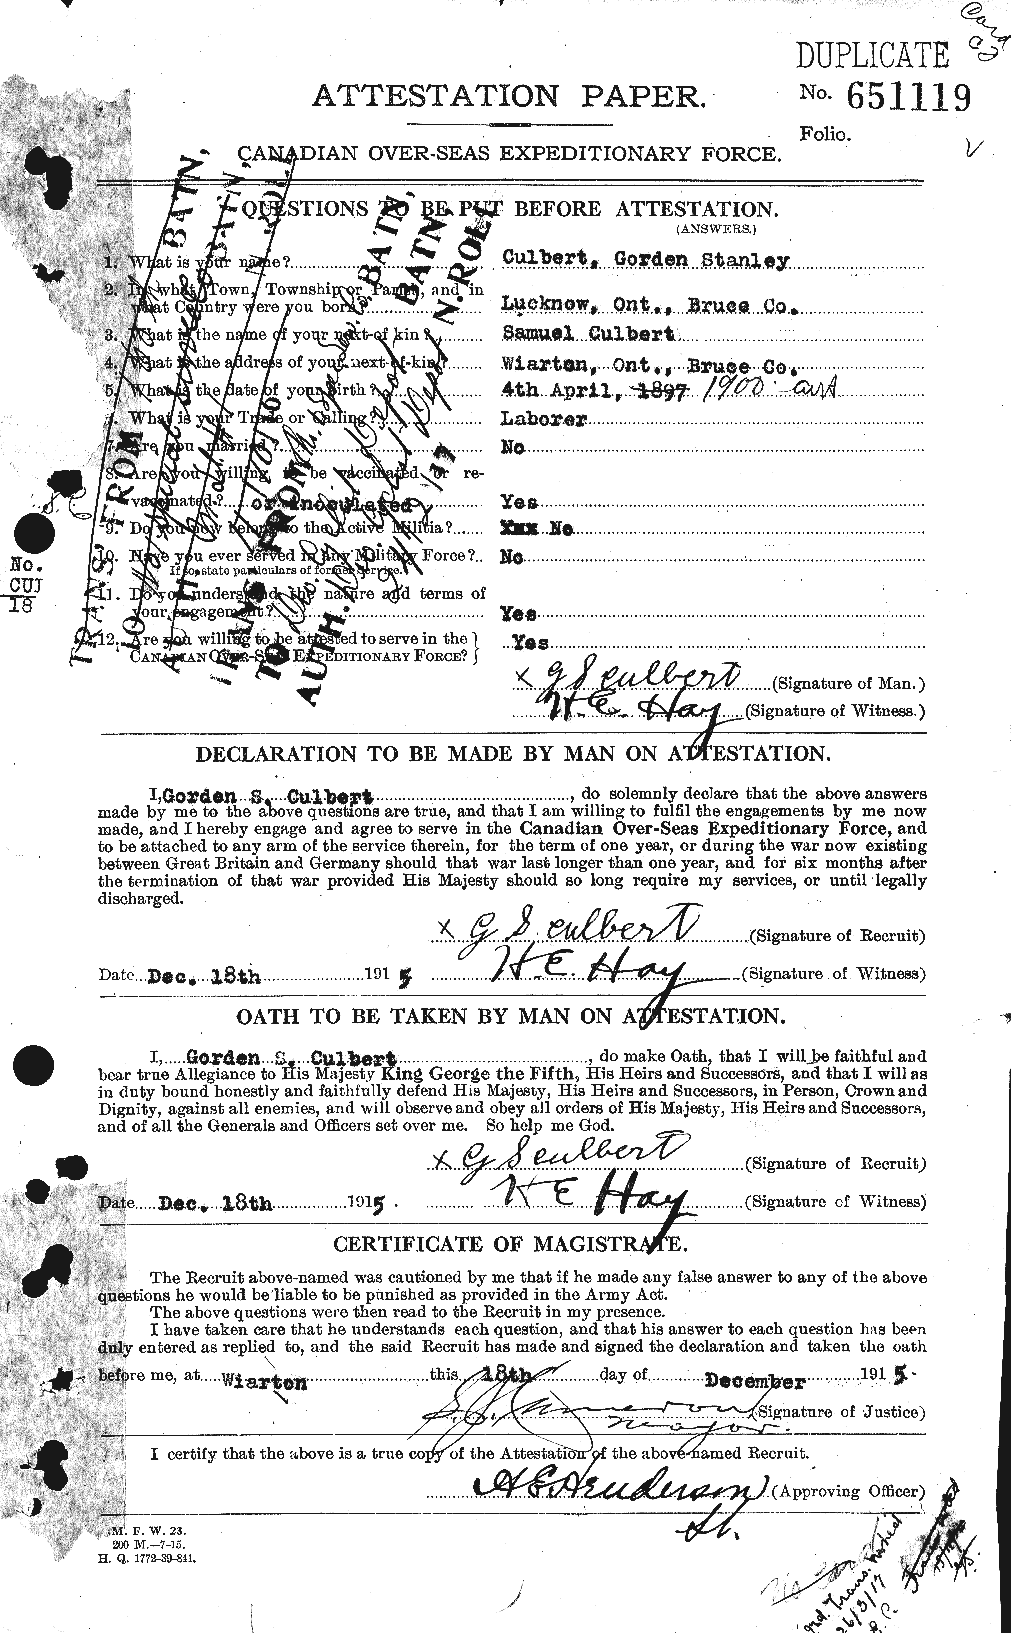 Card
DUPLICATE
ATTESTATION PAPER.
No. 651119
Folio.
CANADIAN OVER-SEAS EXPEDITIONARY FORCE.
QUESTIONS TO BE PUT BEFORE ATTESTATION.
(ANSWERS.)
1. What is your name? Culbert, Gorden Stanley
2. In what Town, Township or Parish, and in
what Country were you born? Lucknow, Ont., Bruce Co.
3. What is the name of your next-of kin? Samuel Culbert
4. What is the address of your next-of-kin? Wiarton, Ont., Bruce Co.
5. What is the date of your birth? 4th April, 1897 1900
6. What is your Trade or Calling? Laborer
7. Are you married? No
8. Are you willing to be vaccinated or re-
vaccinated? or inoculated Yes
9. Do you now belong to the Active Militia? No
10. Have you ever served in any Military Force? No
If so, state particulars of former Service.
11. Do you understand the nature and terms of
your engagement? Yes
12. Are you willing to be attested to serve in the
CANADIAN OVER-SEAS EXPEDITIONARY FORCE? } Yes
TRANS FROM BATN,
TO BATN,
AUTH. ROLL
TRANS FROM BATN,
TO BATN,
AUTH. N. ROLL
No.
CUJ
18
x G S Culbert (Signature of Man.)
H. E. Hay (Signature of Witness.)
DECLARATION TO BE MADE BY MAN ON ATTESTATION.
I, Gorden S. Culbert, do solemnly declare that the above answers
made by me to the above questions are true, and that I am willing to fulfil the engagements by me now
made, and I hereby engage and agree to serve in the Canadian Over-Seas Expeditionary Force, and
to be attached to any arm of the service therein, for the term of one year, or during the war now existing
between Great Britain and Germany should that war last longer than one year, and for six months after
the termination of that war provided His Majesty should so long require my services, or until legally
discharged.
x G S. Culbert (Signature of Recruit)
Date Dec. 18th 1915 H. E. Hay (Signature of Witness)
OATH TO BE TAKEN BY MAN ON ATTESTATION.
I, Gorden S. Culbert, do make Oath, that I will be faithful and
bear true Allegiance to His Majesty King George the Fifth, His Heirs and Successors, and that I will as
in duty bound honestly and faithfully defend His Majesty, His Heirs and Successors, in Person, Crown and
Dignity, against all enemies, and will observe and obey all orders of His Majesty, His Heirs and Successors,
and of all the Generals and Officers set over me. So help me God.
x G S Culbert (Signature of Recruit)
Date Dec. 18th 1915. H E Hay (Signature of Witness)
CERTIFICATE OF MAGISTRATE.
The Recruit above-named was cautioned by me that if he made any false answer to any of the above
questions he would be liable to be punished as provided in the Army Act.
The above questions were then read to the Recruit in my presence.
I have taken care that he understands each question, and that his answer to each question has been
duly entered as replied to, and the said Recruit has made and signed the declaration and taken the oath
before me, at Wiarton this 18th day of December 1915.
Cameron (Signature of Justice)
Major.
I certify that the above is a true copy of the Attestation of the above-named Recruit.
A E Henderson (Approving Officer)
Lt.
M. F. W. 23.
200 M.—7-15.
H. Q. 1772-39-841.
Trans. noted
26/3/17